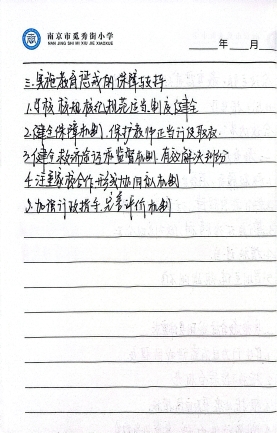 南京市觅秀街小学
NAN JING SHI MI XIU JIE XIAOXUE
年 月
三.实施教育惩戒的保障与支持
1.学校校规校纪规范应当制度健全
2.健全保障机制,保护教师正当行使职权.
3.健全救济途径和监督机制.有效解决纠纷
4.注重家校合作.形成协同机制
5.加强行政指导,完善评价机制